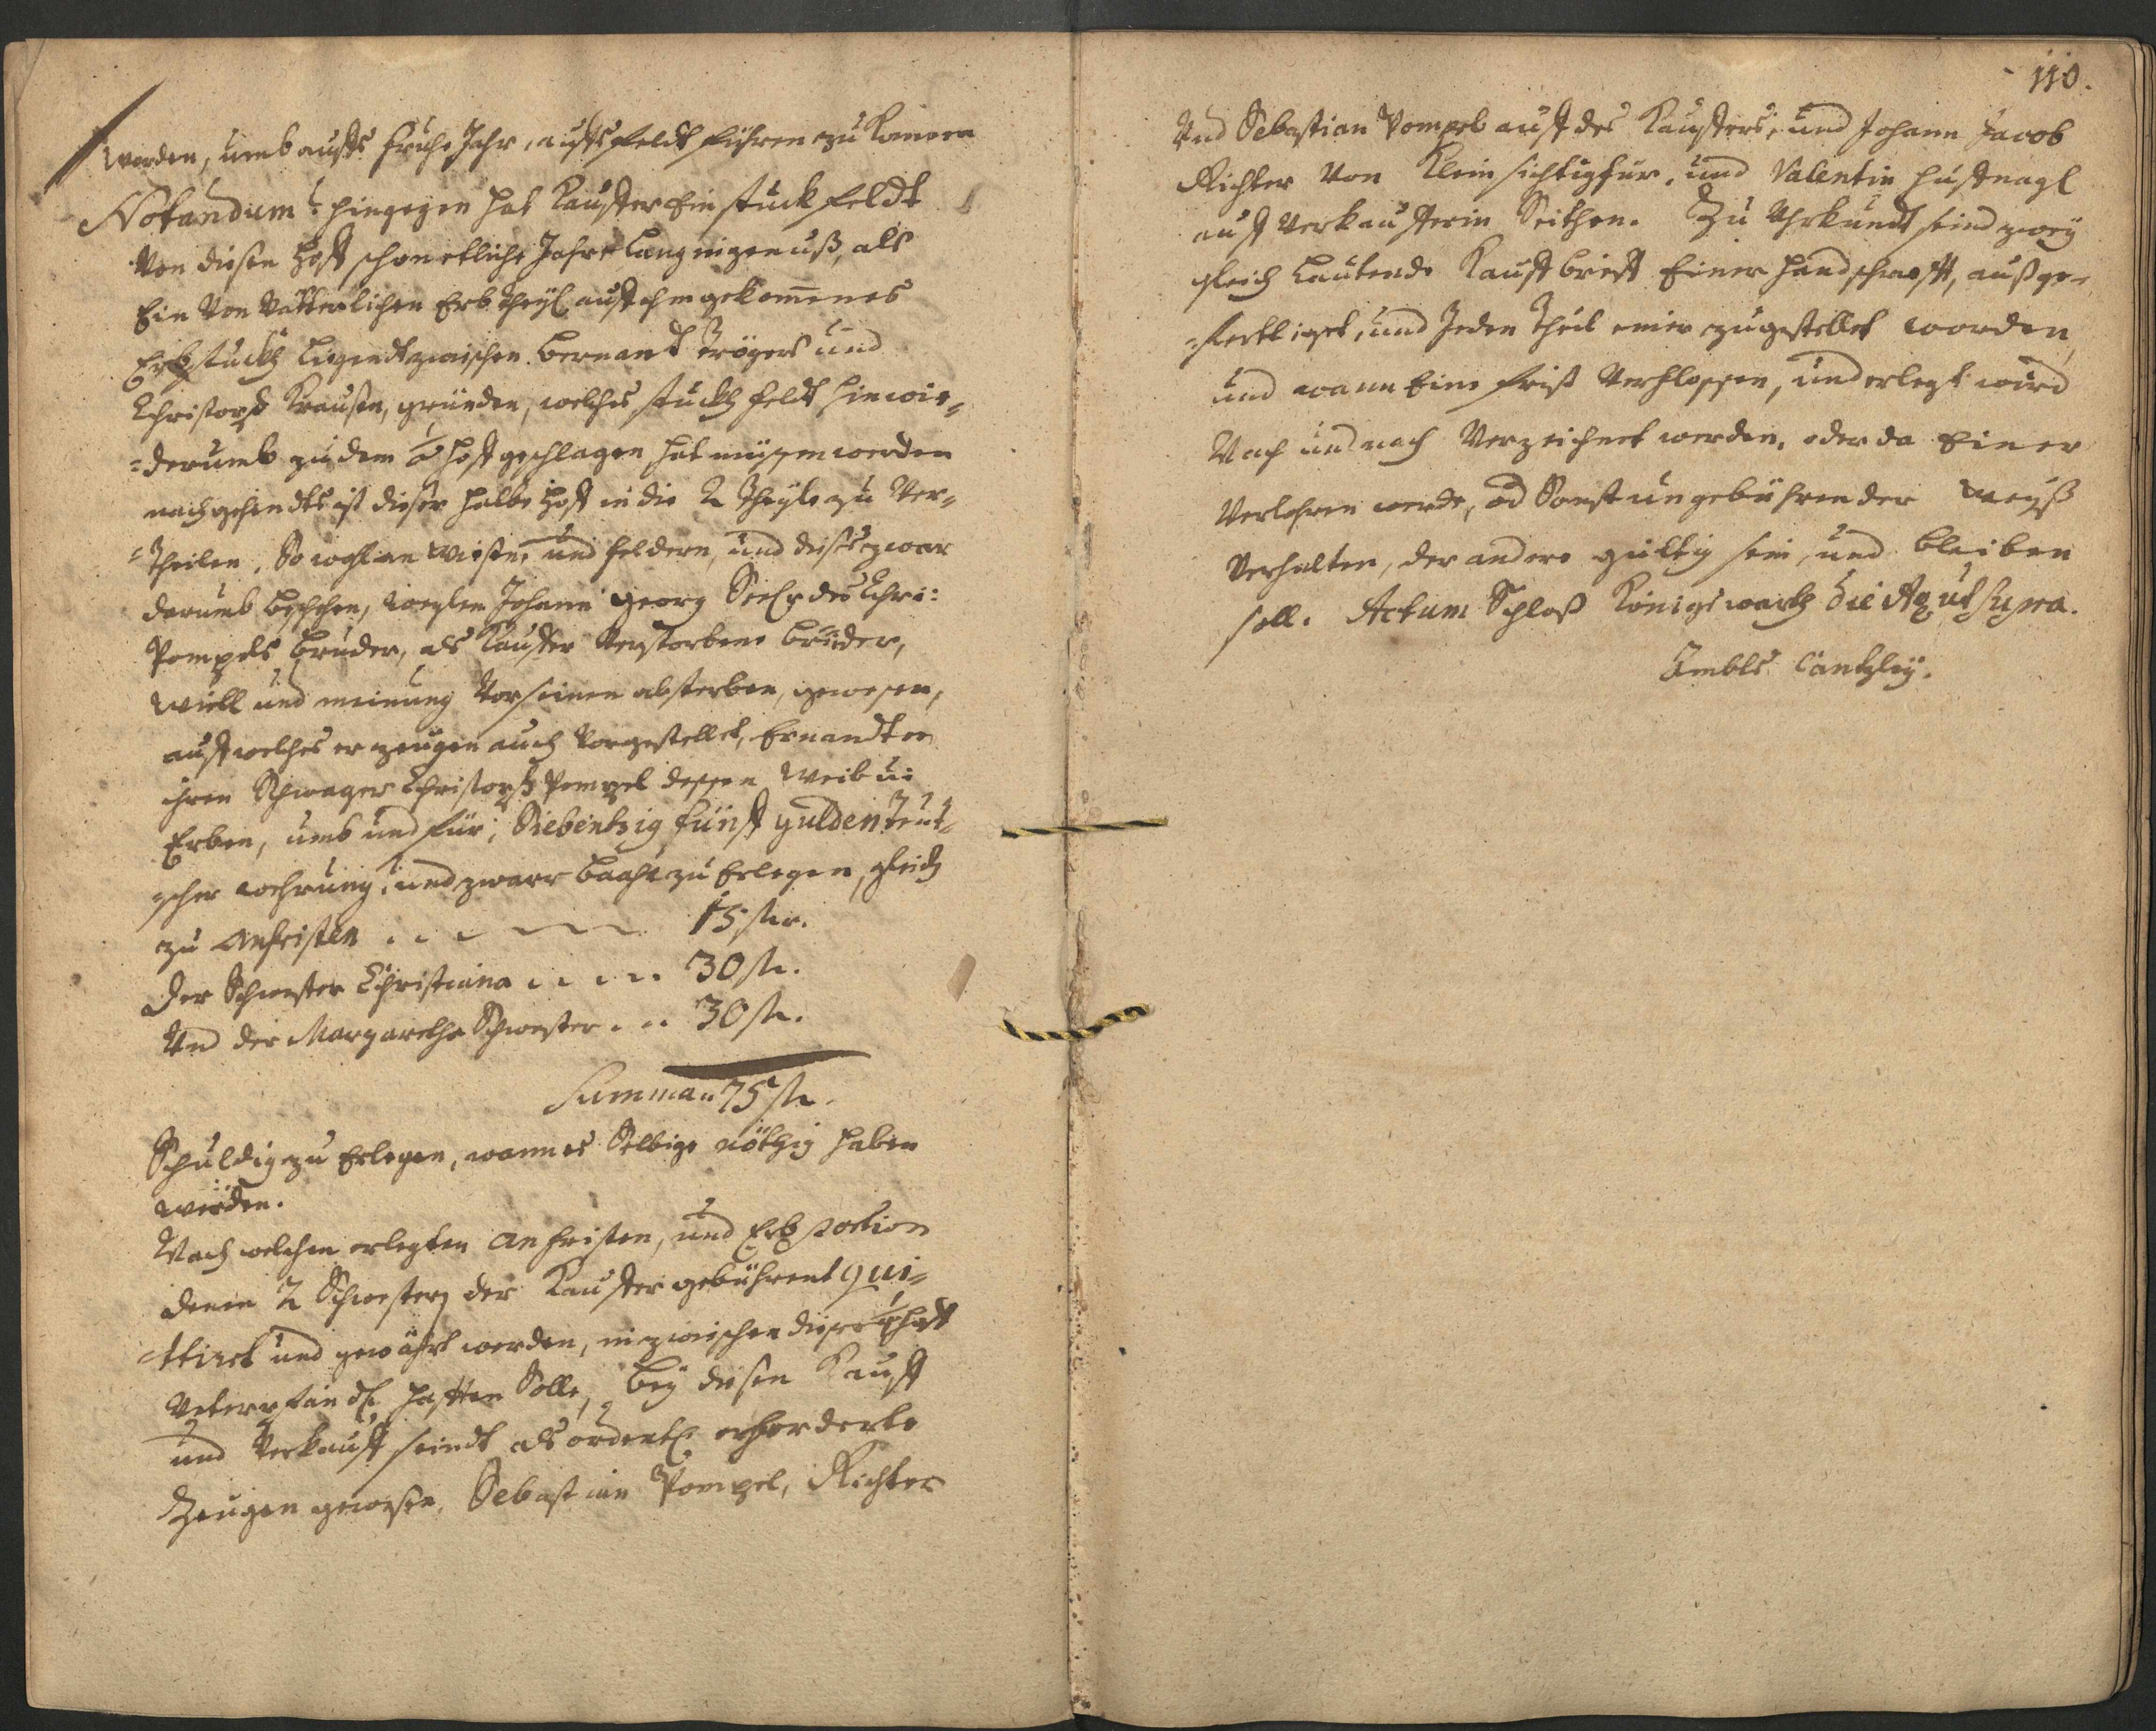 werden, umb auffs Fruhe Jahr, auffs feldt führen zu können
Notandum: hingegen hat Kauffer Ein stuck feldt
Von diesen Hoff schon etliche Jahr Lang in genuß, als
Ein Von Vätterlichen Erbtheyl auff ihm gekommenes
Erbstuckh Liegendt zwischen Bernardt Trögers und
Christoph Krausen, gründen, welches stuckh feldt hinwie-
=derumb zu dem ½ Hoff geschlagen hat müssen werden
nachgehendts ist dieser halbe Hoff in die 2 Theyle zu Ver-
=Theilen, So wohl an Wiesen, und feldern, und dieses zwar
darumb beschehen, weylen Johann Georg Seel: des Chri:
Pompels Bruder, als Kauffer Verstorbene Brüder,
Wiell und meinung Vor seinen absterben, gewesen,
auff welches er zeugen auch Vorgestellet, Ernandten
ihren Schwager Christoph Pompel dessen Weib u:
Erben, umb und für; Siebentzig fünff gulden Teut-
scher wehrung; und zwarr baahr zu Erlegen, gleich
zu Anfristen . . . 15 fl.
Der Schwester Christiana . . . . 30 fl.
Und der Margaretha Schwester . . . 30 fl.
Summa: 75 fl.
Schuldig zu Erlegen, wann es Selbige nöthig haben
würden.
Nach welchen erlegten Anfristen, und Erbportion
denen 2 Schwestern der Kauffer gebührent qui-
=ttiret und gewährt werden, inzwischen dieser ½ Hoff
Unterpfändl: hafften Solle, bey diesen Kauff
und Verkauff seindt als ordentl: erforderte
Zeugen gewesen, Sebastian Pompel, Richter
110.
Und Sebastian Pompel auff des Kauffers; und Johann Jacob
Richter Von Klein Sichtigfür, und Valentin Huffnagl
auff Verkaufferin Seithen. Zu Uhrkundt seind zwey
gleich Lautende Kauffbrieff Einer Handschrifft, außge-
=ferttiget, und Jeden Theil einer zugestellet worden,
und wann Eine frist Verflossen, und erlegt wird
Nach und nach Verzeichnet werden, oder da Einer
Verlohren werde, od Sonst ungebührender Weyß
Verhalten, der andere gültig sein, und bleiben
soll. Actum Schloß Königswarth Die Ao ut supra.
Ambts Cantzley.